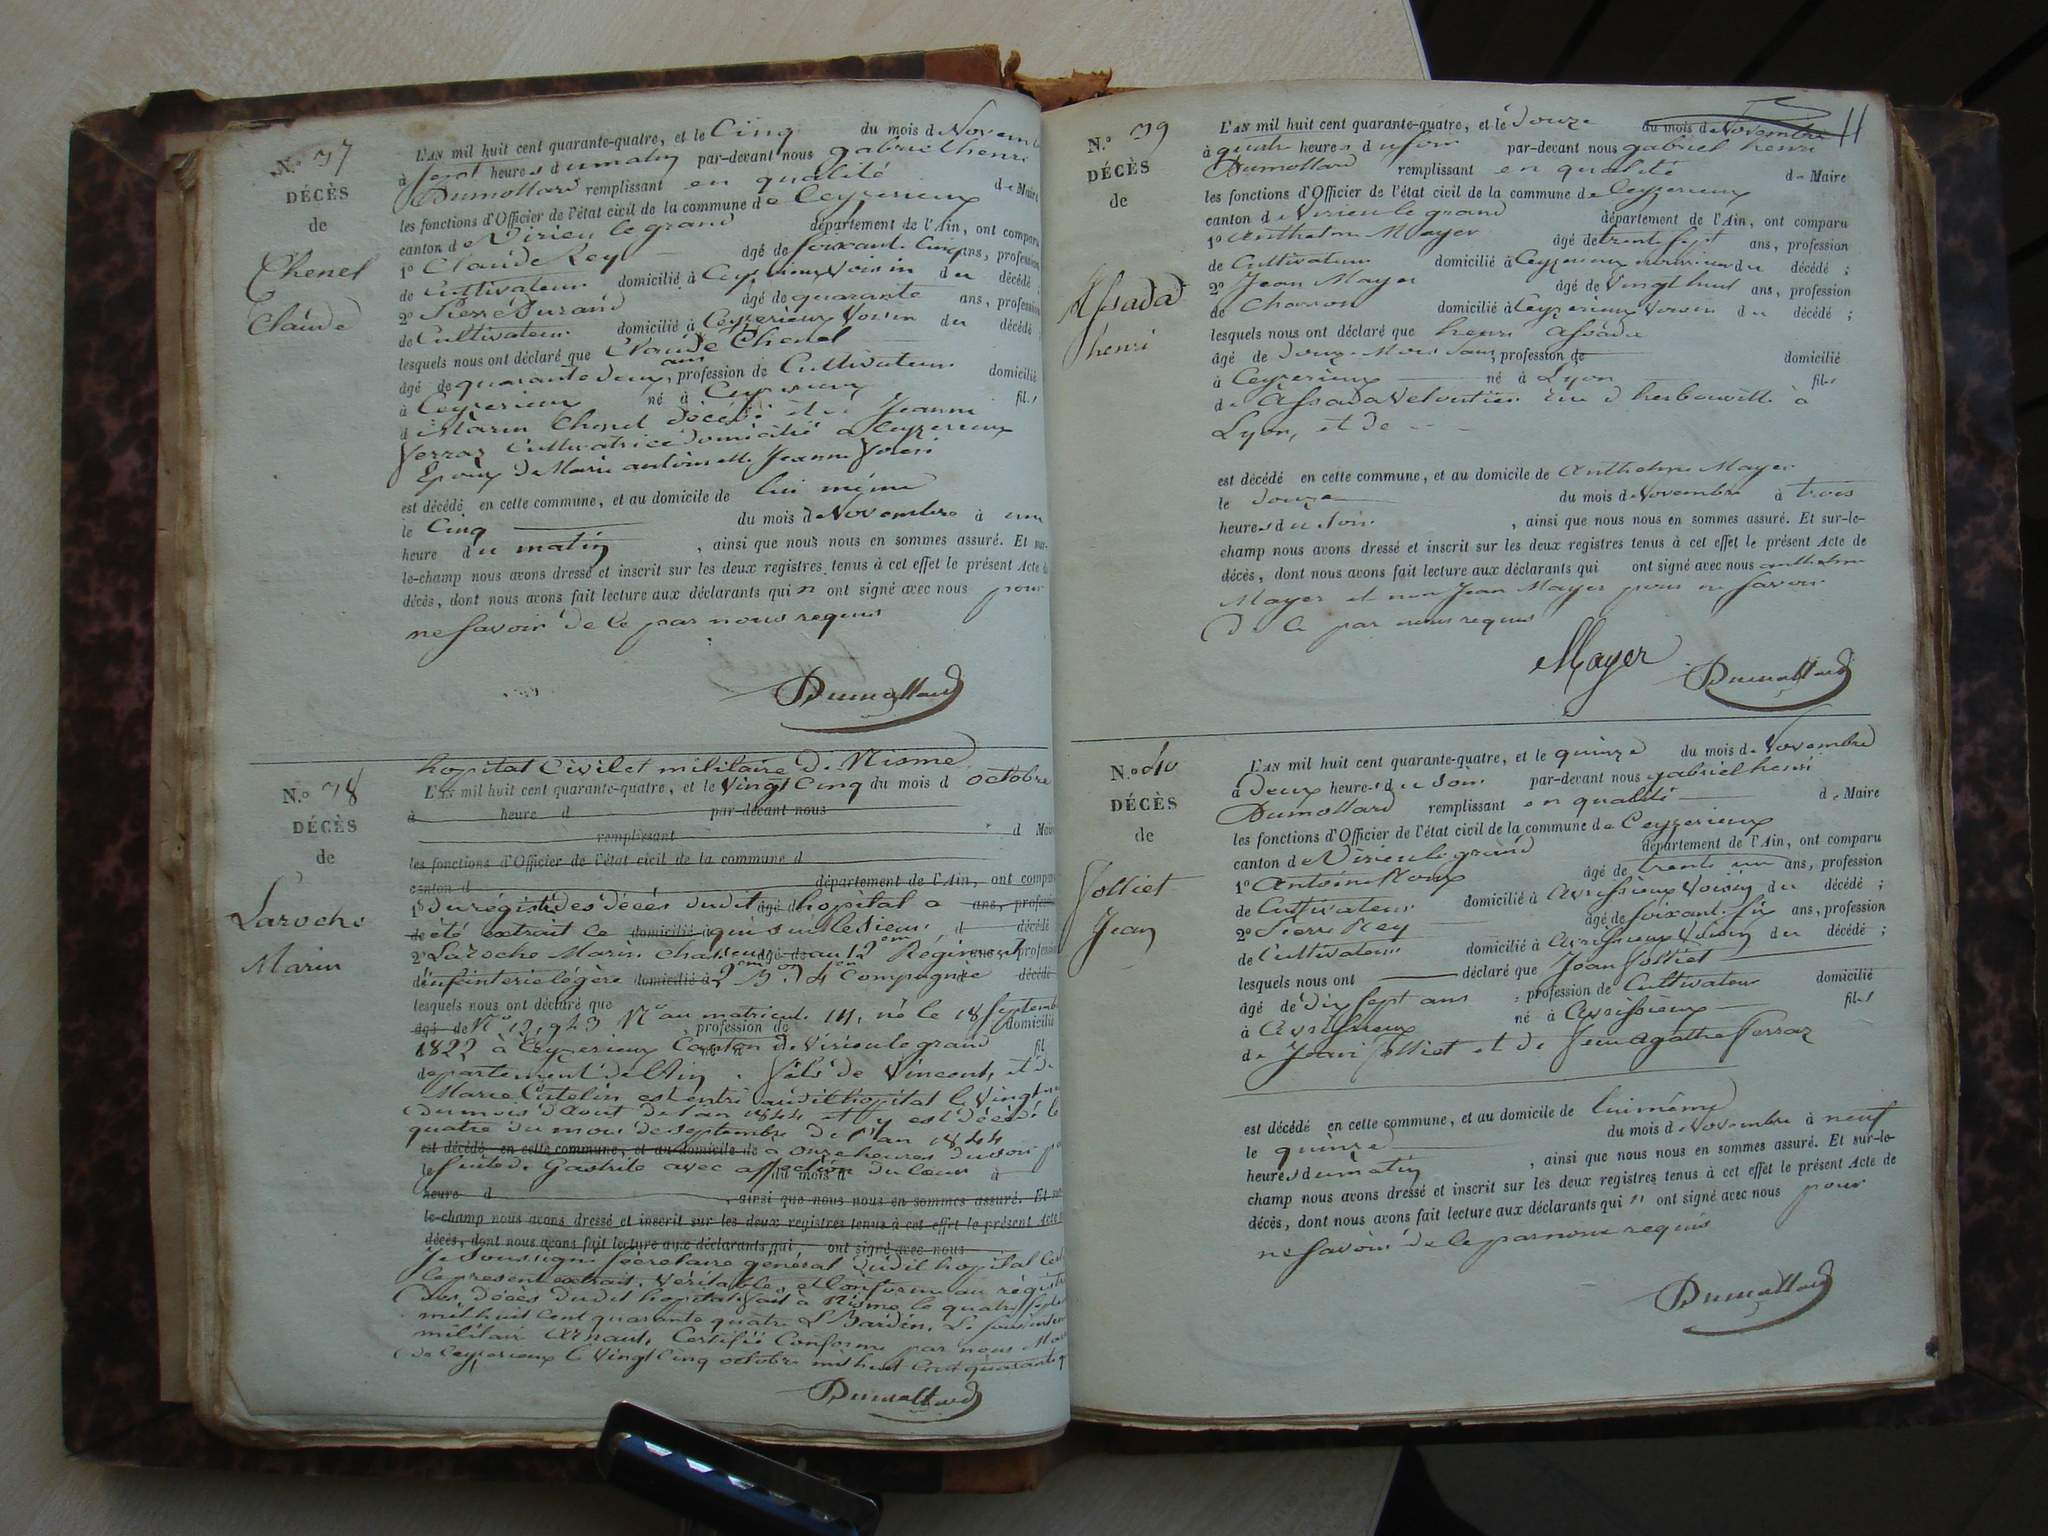 N.o 37
DÉCÈS
de
Chenel
Claude
L'AN mil huit cent quarante-quatre, et le Cinq du mois d Novem
à sept heures du matin par-devant nous gabriel henri
Dumollard remplissant en qualité de Maire
les fonctions d'Officier de l'état civil de la commune de Ceyzerieux
canton de Virieu le grand département de l'Ain, ont comparu
1o Claude Rey âgé de soixante Cinq ans, profession
de Cultivateur domicilié à Ceyzerieux voisin du décédé ;
2o Pierre Durand âgé de quarante ans, profession
de Cultivateur domicilié à Ceyzerieux voisin du décédé ;
lesquels nous ont déclaré que Claude Chenel
âgé de quarante deux ans, profession de Cultivateur domicilié
à Ceyzerieux né à Ceyzerieux fils
d Marin Chenel décédé et de Jeanne
Ferraz Cultivatrice domicilié a Ceyzerieux
Epoux de Marie antoinette Jeanne
est décédé en cette commune, et au domicile de lui même
le Cinq du mois d Novembre à une
heure du matin , ainsi que nous nous en sommes assuré. Et sur-
le-champ nous avons dressé et inscrit sur les deux registres tenus à cet effet le présent Acte de
décès, dont nous avons fait lecture aux déclarants qui n ont signé avec nous pour
ne savoir de ce par nous requis
Dumollard
N.o 38
DÉCÈS
de
Laroche
Marin
hopital Civil et militaire de Nisme
L'AN mil huit cent quarante-quatre, et le Vingt Cinq du mois d octobre
à heure d par-devant nous
remplissant d Maire
les fonctions d'Officier de l'état civil de la commune d
canton d département de l'Ain, ont comparu
1o Du régistre des décès dudit âgé de hopital à ans, profession
de été extrait ce domicilié à qui suit le sieur, d décédé
2o Laroche Marin Chasseur âgé de au 12eme Régiment profession
d'infanterie légère domicilié à 2eme Bon 4eme Compagnie décédé
lesquels nous ont déclaré que
âgé de No 12,923 No au matricule 111, né le 18 Septembre
profession de domicilié
1822 à Ceyzerieux Canton de Virieu le grand fil
departement de l'Ain. fils de Vincent, et de
Marie Catelin est entré audit hopital le Vingt
du mois d'Aout de l'an 1844 et y est décédé le
quatre du mois de septembre de l'an 1844
est décédé en cette commune, et au domicile de a onze heures du soir par
le suite de Gastrite avec affection du Coeur du mois d à
heure d , ainsi que nous nous en sommes assuré. Et sur-
le-champ nous avons dressé et inscrit sur les deux registres tenus à cet effet le présent Acte
décès, dont nous avons fait lecture aux déclarants qui ont signé avec nous
Je soussigné secretaire général dudit hopital Certi
le present extrait, véritable, et Conforme au régistre
des décès dudit hopital fait à Nisme le quatre septe
mil huit cent quarante quatre Bardin. Le sousinten
militaire Arnaut, Certifié Conforme par nous Mai
de Ceyzerieux le Vingt Cinq octobre mil huit Cent quarante q
Dumollard
11
N.o 39
DÉCÈS
de
Assada
henri
L'AN mil huit cent quarante-quatre, et le douze du mois de Novembre
à quatre heures du soir par-devant nous gabriel henri
Dumollard remplissant en qualité de Maire
les fonctions d'Officier de l'état civil de la commune de Ceyzerieux
canton de Virieu le grand département de l'Ain, ont comparu
1o Anthelme Mayer âgé de trente sept ans, profession
de Cultivateur domicilié à Ceyzerieux nourricier du décédé ;
2o Jean Mayer âgé de Vingt huit ans, profession
de Charron domicilié à Ceyzerieux voisin du décédé ;
lesquels nous ont déclaré que henri Assada
âgé de douze Mois sans, profession de domicilié
à Ceyzerieux né à Lyon fils
de Assada Veloutier rue d'herbouville à
Lyon, et de - -
est décédé en cette commune, et au domicile de Anthelme Mayer
le douze du mois d Novembre à trois
heures du soir , ainsi que nous nous en sommes assuré. Et sur-le-
champ nous avons dressé et inscrit sur les deux registres tenus à cet effet le présent Acte de
décès, dont nous avons fait lecture aux déclarants qui ont signé avec nous anthelme
Mayer et non Jean Mayer pour ne savoir
de ce par nous requis
Mayer Dumollard
N.o 40
DÉCÈS
de
Jolliet
Jean
L'AN mil huit cent quarante-quatre, et le quinze du mois de Novembre
à Deux heures du soir par-devant nous gabriel henri
Dumollard remplissant en qualité de Maire
les fonctions d'Officier de l'état civil de la commune de Ceyzerieux
canton de Virieu le grand département de l'Ain, ont comparu
1o Antoine Roux âgé de trente un ans, profession
de Cultivateur domicilié à Avrissieux Voisin du décédé ;
2o Pierre Rey âgé de soixante six ans, profession
de Cultivateur domicilié à Avrissieux Voisin du décédé ;
lesquels nous ont déclaré que Jean Jolliet
âgé de dix sept ans , profession de Cultivateur domicilié
à Avrissieux né à Avrissieux fils
de Jean Jolliet et de feue Agathe Ferraz
est décédé en cette commune, et au domicile de lui même
le quinze du mois d Novembre à neuf
heures du matin , ainsi que nous nous en sommes assuré. Et sur-le-
champ nous avons dressé et inscrit sur les deux registres tenus à cet effet le présent Acte de
décès, dont nous avons fait lecture aux déclarants qui n ont signé avec nous pour
ne savoir de ce par nous requis
Dumollard